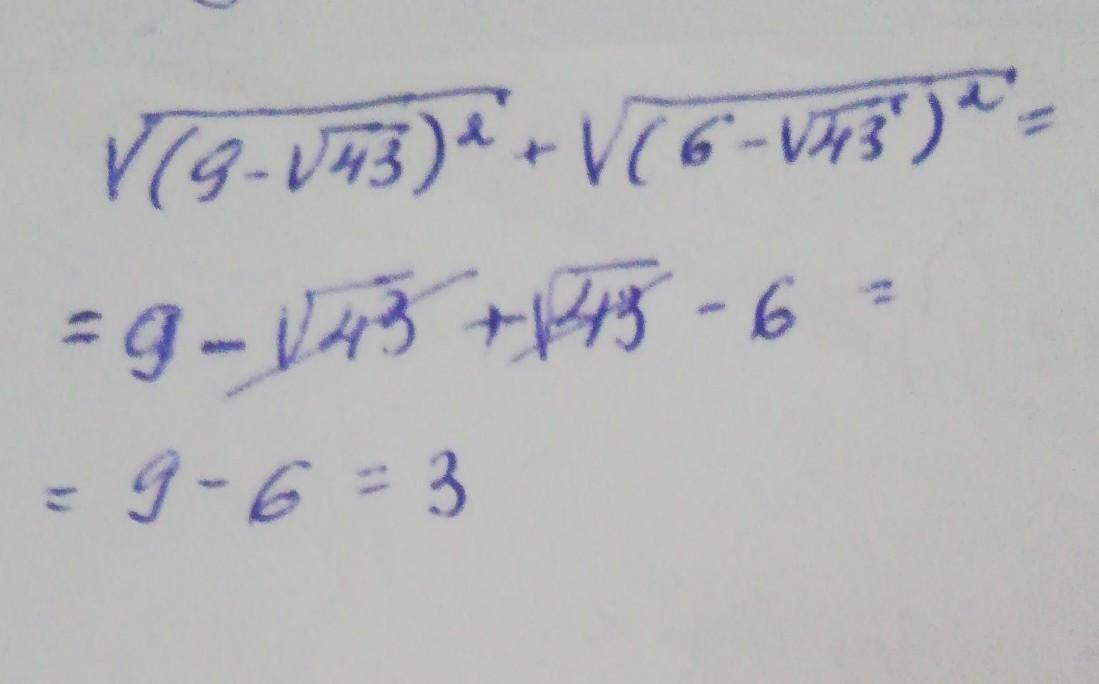 √(9-√43)² + √(6-√43)² =
= 9 - √43 + √43 - 6 =
= 9 - 6 = 3